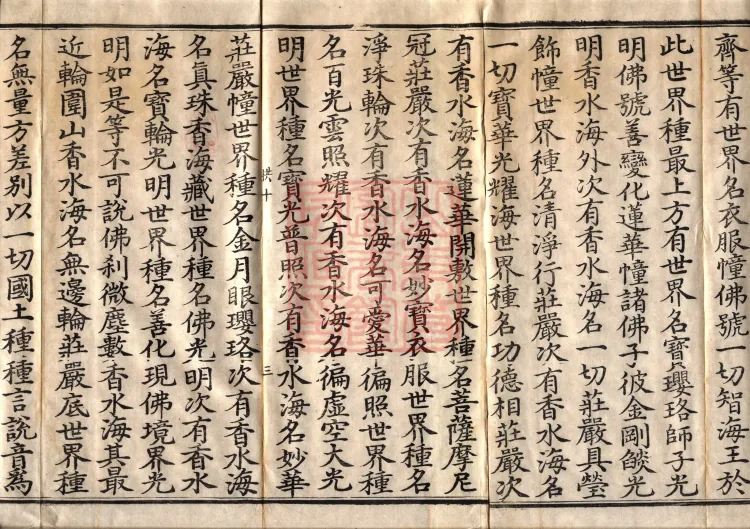 齊等有世界名衣服幢佛號一切智海王於
此世界種最上方有世界名寶瓔珞師子光
明佛號善變化蓮華幢諸佛子彼金剛燄光
明香水海外次有香水海名一切莊嚴具瑩
飾幢世界種名清淨行莊嚴次有香水海名
一切寶華光耀海世界種名功德相莊嚴次
有香水海名蓮華開敷世界種名菩薩摩尼
冠莊嚴次有香水海名妙寶衣服世界種名
淨珠輪次有香水海名可愛華徧照世界種
名百光雲照耀次有香水海名徧虛空大光
明世界種名寶光普照次有香水海名妙華
拱十 三
莊嚴幢世界種名金月眼瓔珞次有香水海
名真珠香海藏世界種名佛光明次有香水
海名寶輪光明世界種名善化現佛境界光
明如是等不可說佛刹微塵數香水海其最
近輪圍山香水海名無邊輪莊嚴底世界種
名無量方差別以一切國土種種言說音為